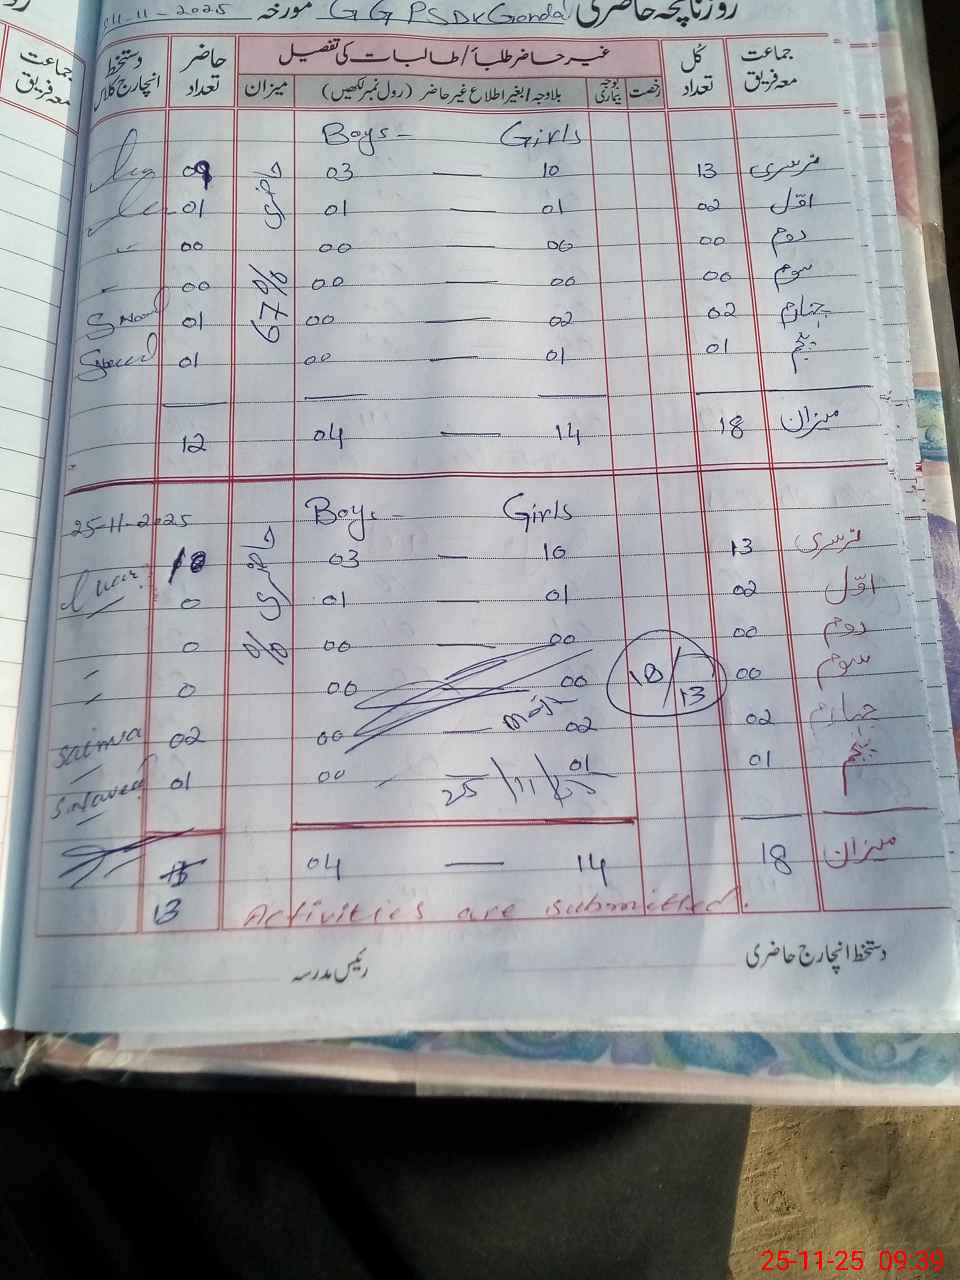 روزنامچہ حاضری GGPS DK Gondal مورخہ 11-2025
جماعت معہ فریق کُل تعداد غیر حاضر طلباء/طالبات کی تفصیل حاضر تعداد دستخط انچارج کلاس
رخصت بوجہ بیماری بلاوجہ/بغیر اطلاع غیر حاضر (رول نمبر لکھیں) میزان
جماعت معہ فریق
Boys - Girls
نرسری 13 10 — 03 09
اوّل 02 01 — 01 01
دوم 00 00 — 00 00
سوم 00 00 — 00 00
چہارم 02 02 — 00 01
پنجم 01 01 — 00 01
حاضری 67%
میزان 18 14 — 04 12
25-11-2025
Boys - Girls
نرسری 13 10 — 03
اوّل 02 01 — 01 0
دوم 00 00 — 00 0
سوم 00 00 — 00 0
چہارم 02 02 — 00 02
پنجم 01 01 — 00 01
حاضری %
18/13
25/11/25
میزان 18 14 — 04
13
Activities are submitted.
دستخط انچارج حاضری رئیس مدرسہ
25-11-25 09:39